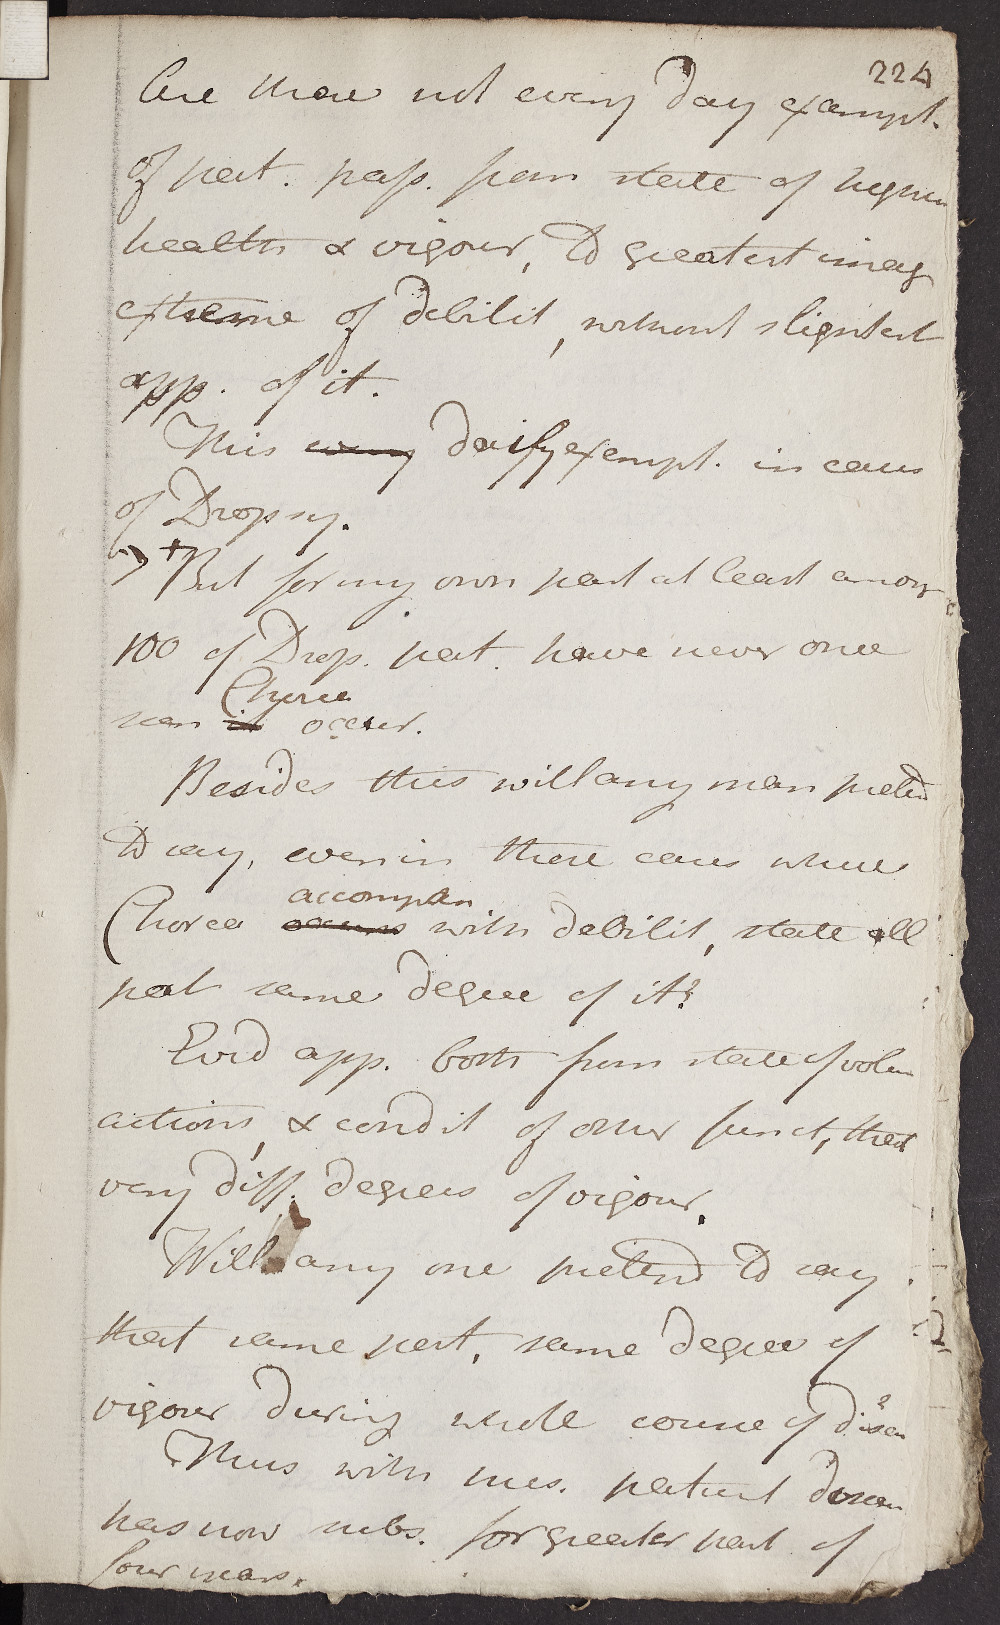 224
Are there not every day exampl.
of pat. pass. from state of highes
health & vigour, to greatest imag
extreme of debilit, without slightest
app. of it.
This every daily exempl. in cases
of Dropsy.
+ But for my own part at least among
100 of Drop. pat. have never once
Chorea
seen it occur.
Besides this will any man preten
to say, even in those cases where
accompan
Chorea occurs with debilit, state all
pat same degree of it?
Evid app. both from state of volun
actions, & condit of other funct, that
very diff. degrees of vigour.
Will any one pretend to say
that same pat. same degree of
vigour during whole course of diseas
Thus with this patient diseas
has now subs. for greater part of
four years.